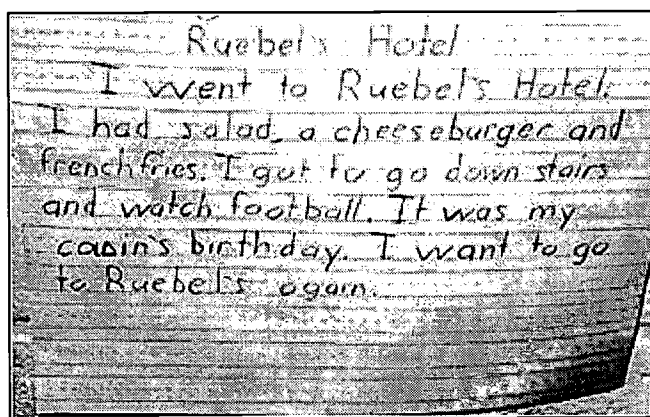 Ruebel's Hotel
I went to Ruebel's Hotel.
I had salad, a cheeseburger and
french fries. I got to go down stairs
and watch football. It was my
cousin's birthday. I want to go
to Ruebel's again.